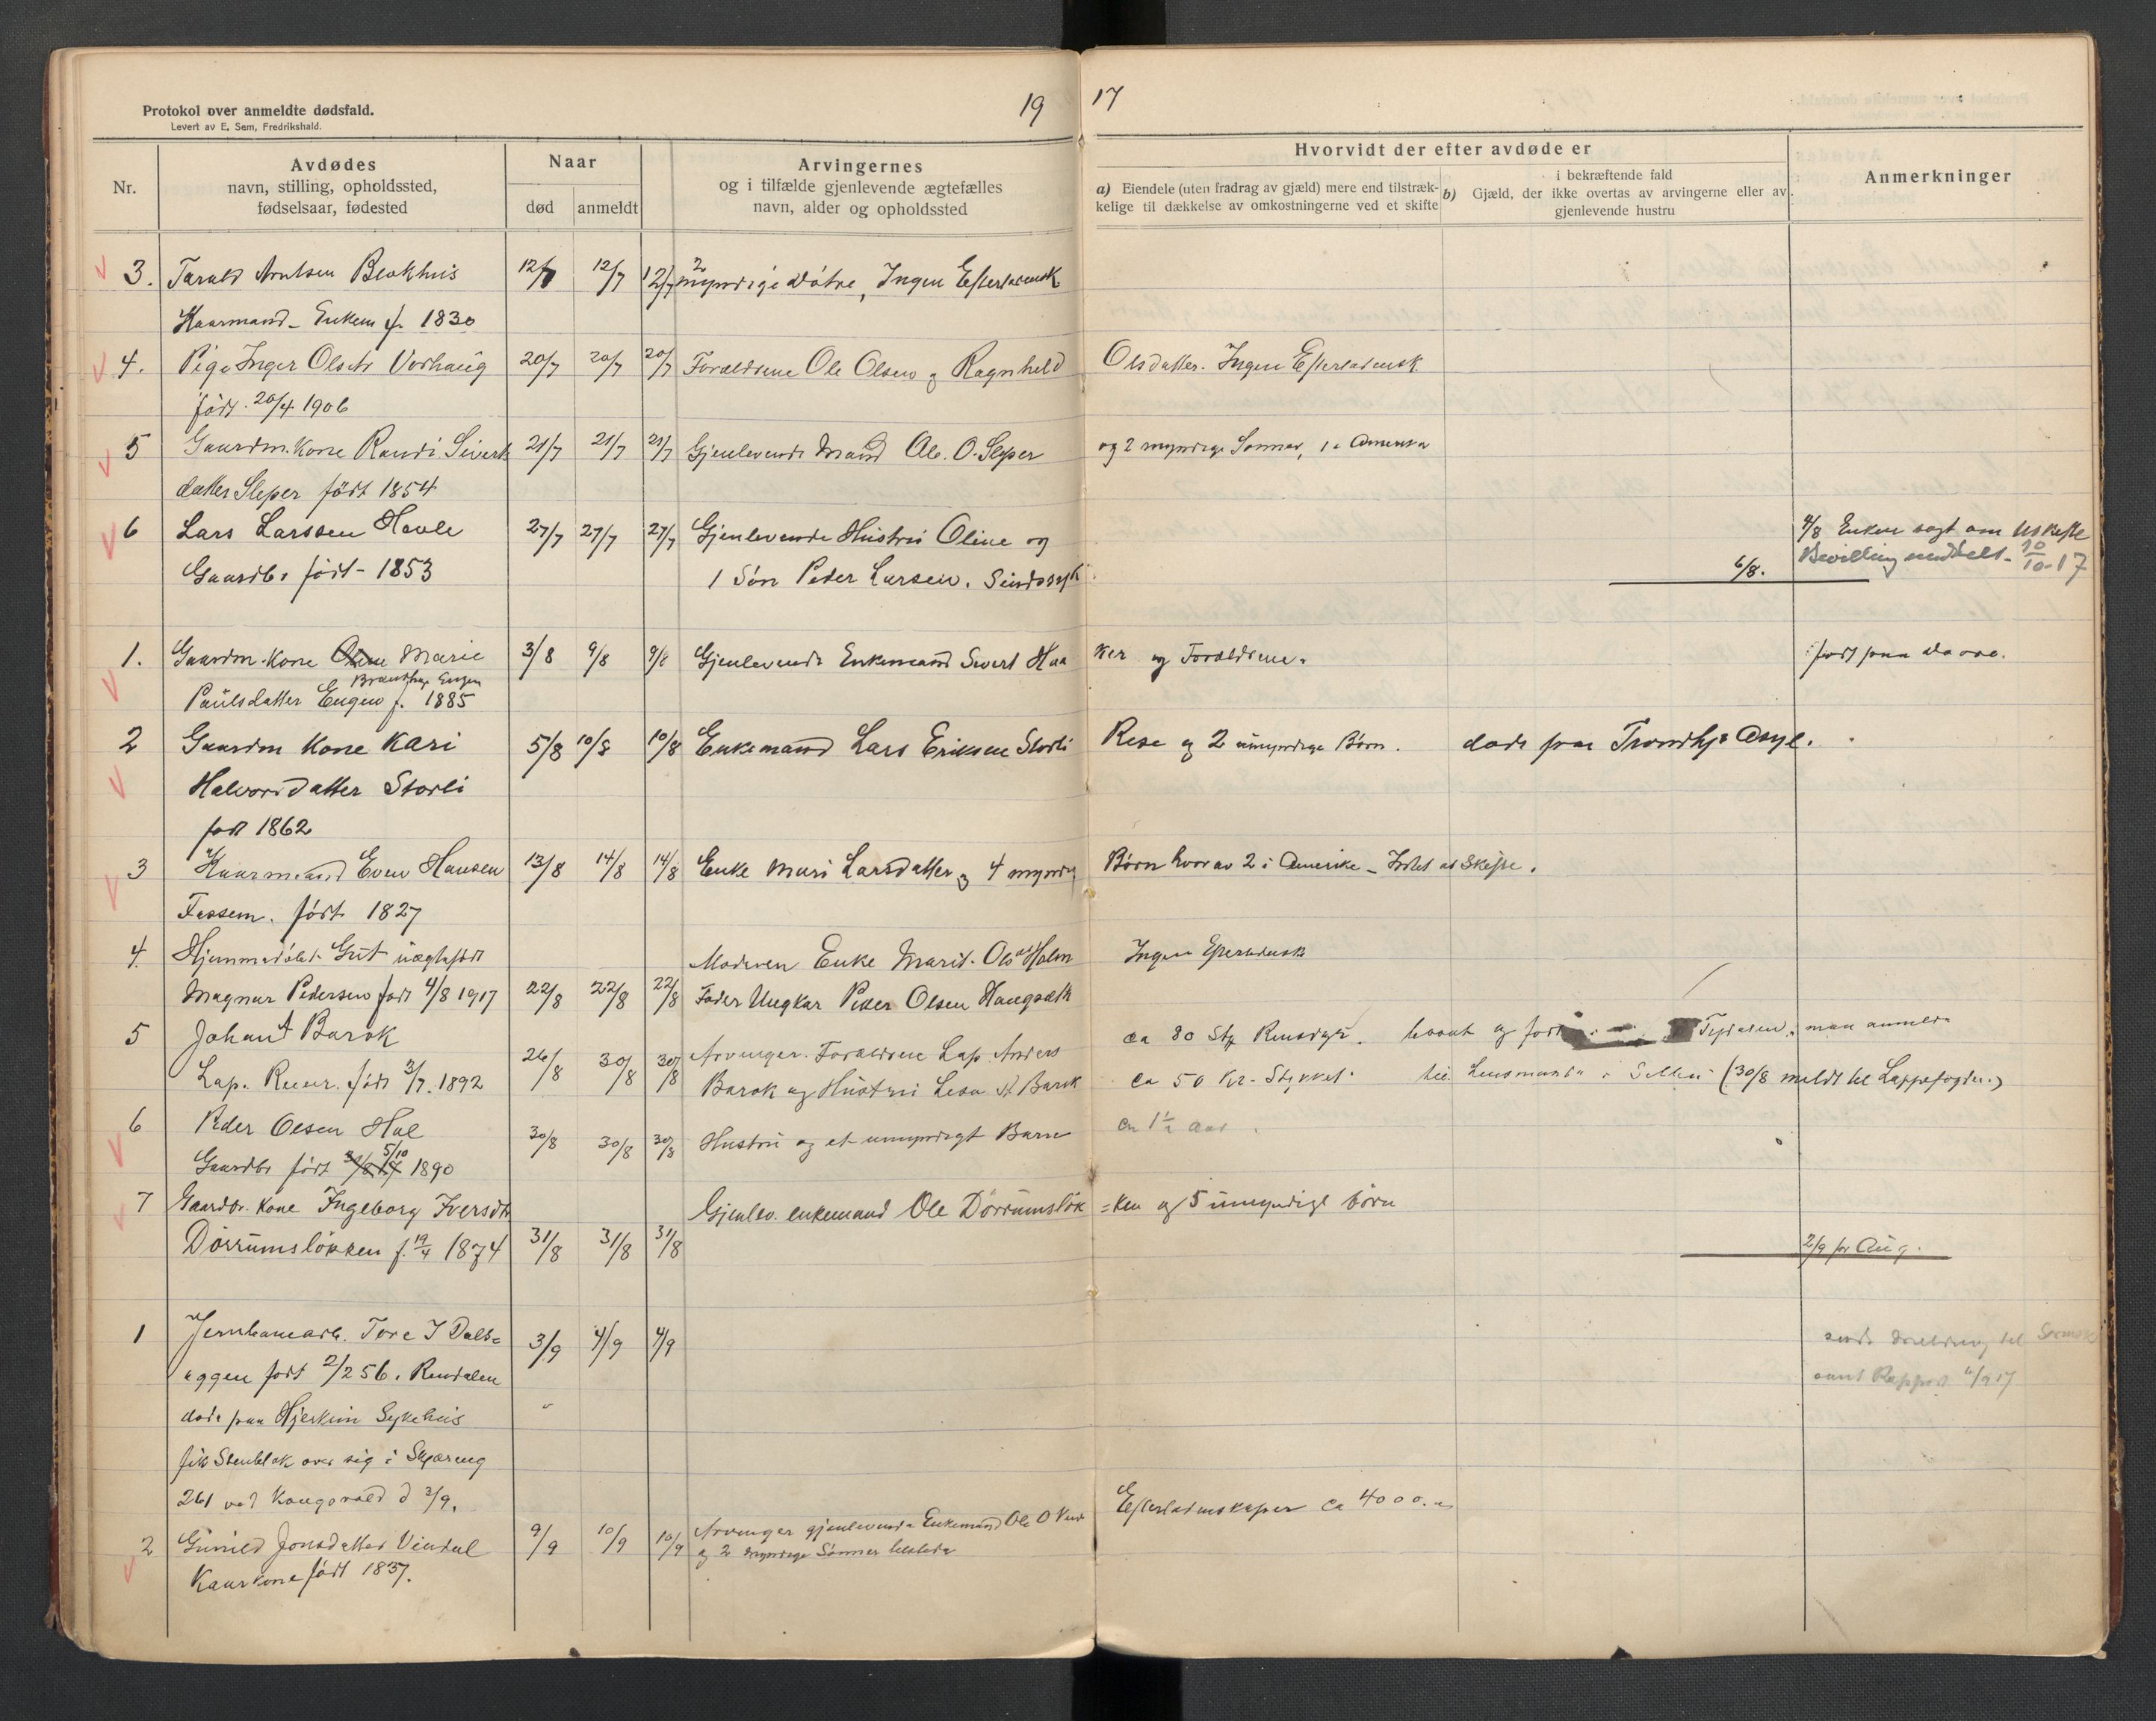 Protokol over anmeldte dødsfald.
Levert av E. Sem, Fredrikshald.
19 17
Nr.
Avdødes
navn, stilling, opholdssted,
fødselsaar, fødested
Naar
død anmeldt
Arvingernes
og i tilfælde gjenlevende ægtefælles
navn, alder og opholdssted
Hvorvidt der efter avdøde er
a) Eiendele (uten fradrag av gjæld) mere end tilstræk-
kelige til dækkelse av omkostningerne ved et skifte
i bekræftende fald
b) Gjæld, der ikke overtas av arvingerne eller av
gjenlevende hustru
Anmerkninger
3. Tarald Arntsen Blokhus 12/7 12/7 12/7 2 myndige døtre, Ingen Efterladensk
Kaarmand - Enkem f. 1830
4. Pige Inger Olsdtr Vorhaug 20/7 20/7 20/7 Forældrene Ole Olsen og Ragnhild Olsdatter. Ingen Efterladensk.
født 20/4 1906
5 Gaardm. Kone Randi Siverts 21/7 21/7 21/7 Gjenlevende Mand Ole. O. Sleper og 2 myndige Sønner, 1 i Amerika
datter Sleper født 1854
6 Lars Larssen Hevle 27/7 27/7 27/7 Gjenlevende Hustru Oline og 4/8 Enken søgt om Uskifte
Gaardbr født - 1853 1 Søn Peder Larsen. Sindssyk 6/8. Bevilling meddelt - 10/10-17
1. Gaardm. Kone Marie 3/8 9/8 9/8 Gjenlevende Enkemand Sivert Haa ker og Forældrene. født paa
Brandhaug Engen
Paulsdatter Engen f. 1885
2 Gaardm Kone Kari 5/8 10/8 10/8 Enkemand Lars Eriksen Storli Rise og 2 umyndige Børn. døde paa Trondhj. Asyl.
Halvorsdatter Storli
født 1862
3 Kaarmand Even Hansen 13/8 14/8 14/8 Enke Mari Larsdatter og 4 myndig Børn hvorav 2 i Amerika - Intet at Skifte.
Fessem. født 1827
4. Hjemmedøbt Gut uægtefødt Moderen Enke Marit Olsdt Holm Ingen Efterladensk
Magnar Pedersen født 4/8 1917 22/8 22/8 22/8 Fader Ungkar Peder Olsen Haugseth
5 Johan A Barok ca 80 Stk Rensdyr. Tydalen, man anmelde
Lap. født 3/7. 1892 26/8 30/8 30/8 Arvinger. Forældrene Lap Anders ca 50 Kr. Stykket. til Lensmand i Selbu (30/8 meldt til Lappefogden.)
Barok og Hustru Lisa A. Barok
6 Peder Olsen Hol 30/8 30/8 30/8 Hustru og et umyndigt Barn ca 1½ Aar.
Gaardbr født 5/10 1890
7 Gaardbr. Kone Ingeborg Iversdtr Gjenlev. enkemand Ole Dørrumsløk =ken og 5 umyndige børn
Dørrumsløkken f. 19/4 1874 31/8 31/8 31/8 2/9 for Aug.
1 Jernbanearb. Tore I Dals= 3/9 4/9 4/9 Melding til
eggen født 2/2 56. Rendalen samt Rapport
døde paa Hjerkin Sykehus
fik Stenblok over sig i Skjæring
261 ved Kongsvold d 3/9.
2 Gunild Jonsdatter Vindal 9/9 10/9 10/9 Arvinger gjenlevende Enkemand Ole O Vind Efterladenskaper ca 4000.-
Kaarkone født 1837. og 2 myndige Sønner